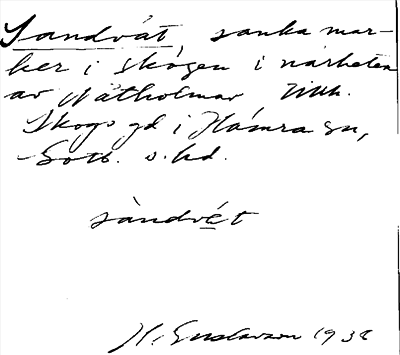 Sandvát, sanka mar-
ker i skogen i närheten
av Nátholmar till.
Skogs gd i Hamra sn,
Gotl. s. hd.
sàndvét
H. Gustavson 1938